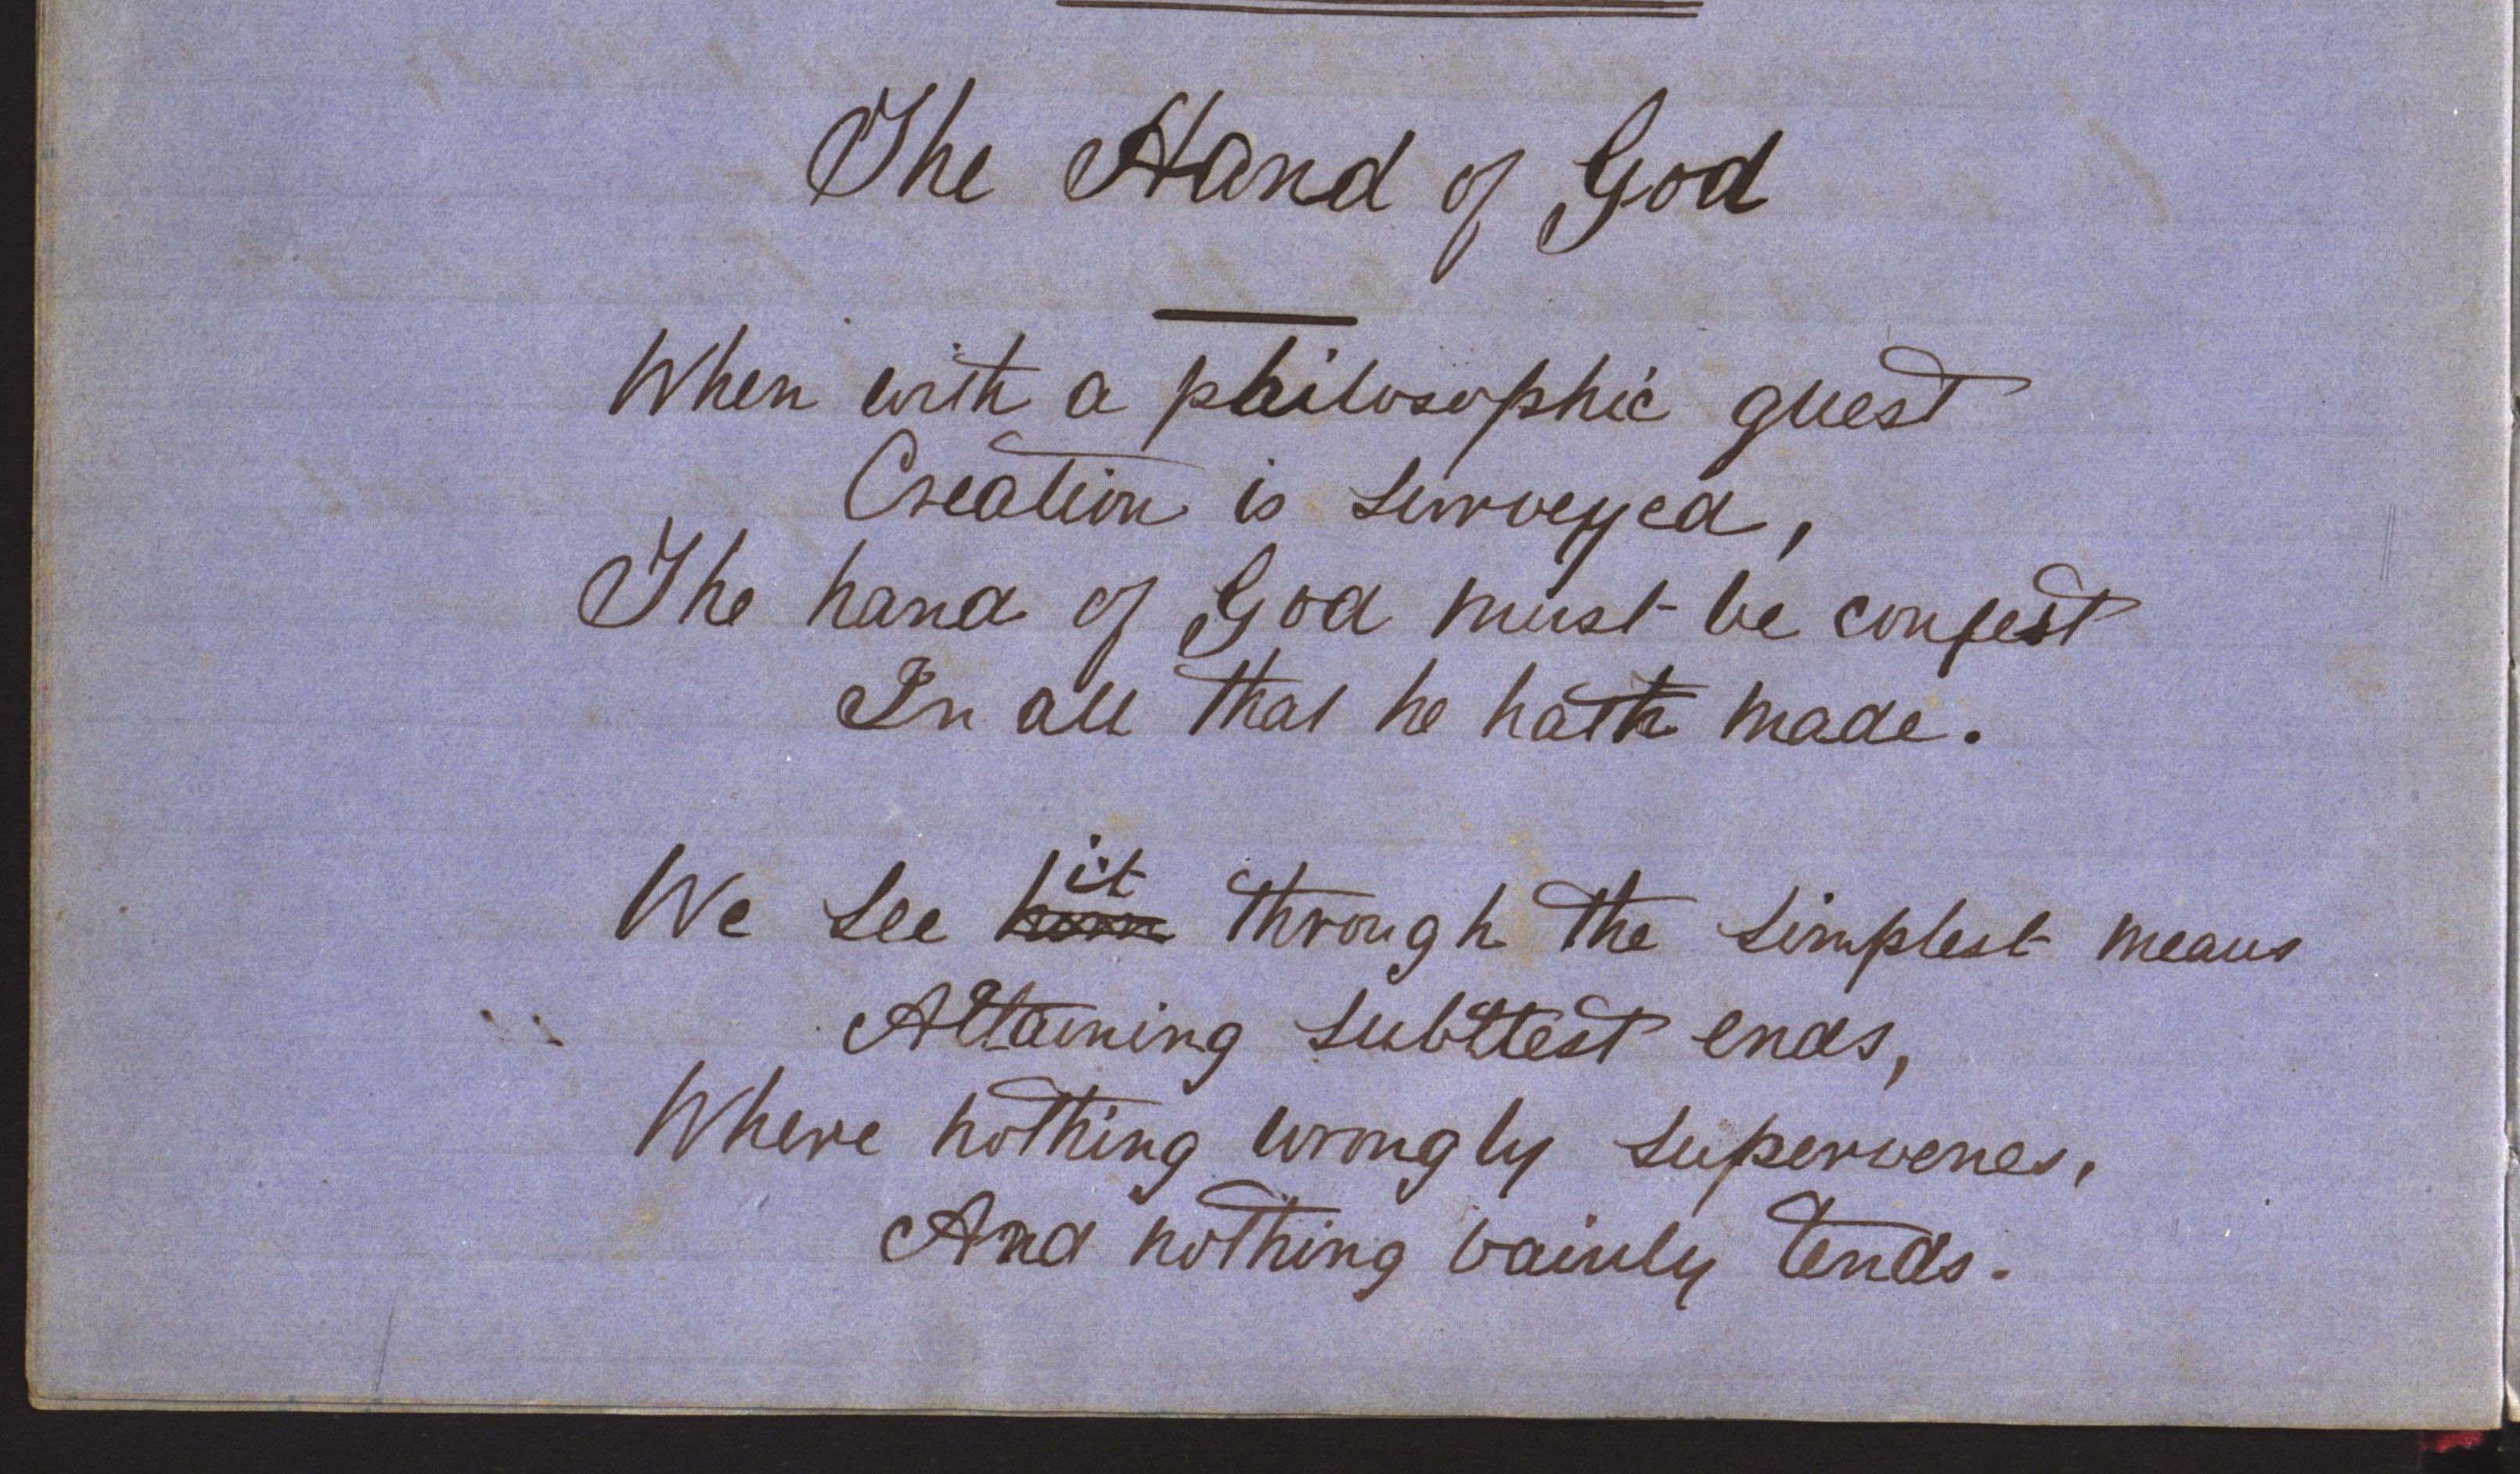 The Hand of God
When with a philosophic quest
Creation is surveyed,
The hand of God must be confest
In all that he hath made.
We see it through the simplest means
Attaining subtlest ends,
Where nothing wrongly supervenes,
And nothing vainly tends.